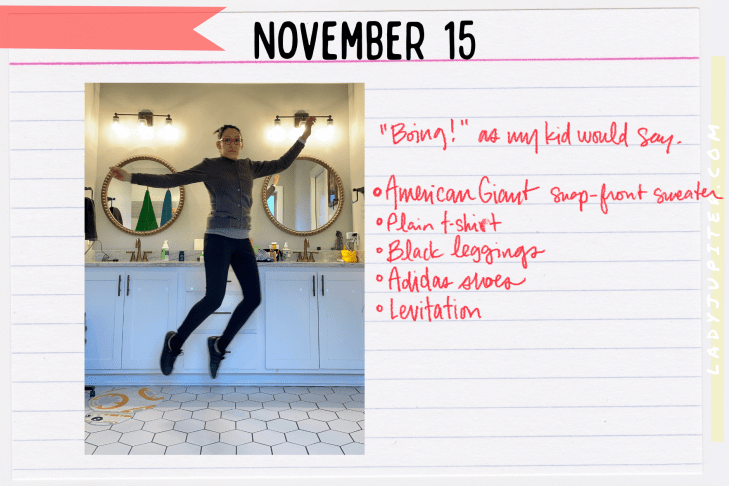 NOVEMBER 15
"Boing!" as my kid would say.
• American Giant snap-front sweater
• Plain t-shirt
• Black leggings
• Adidas shoes
• Levitation
LADYJUPITER.COM